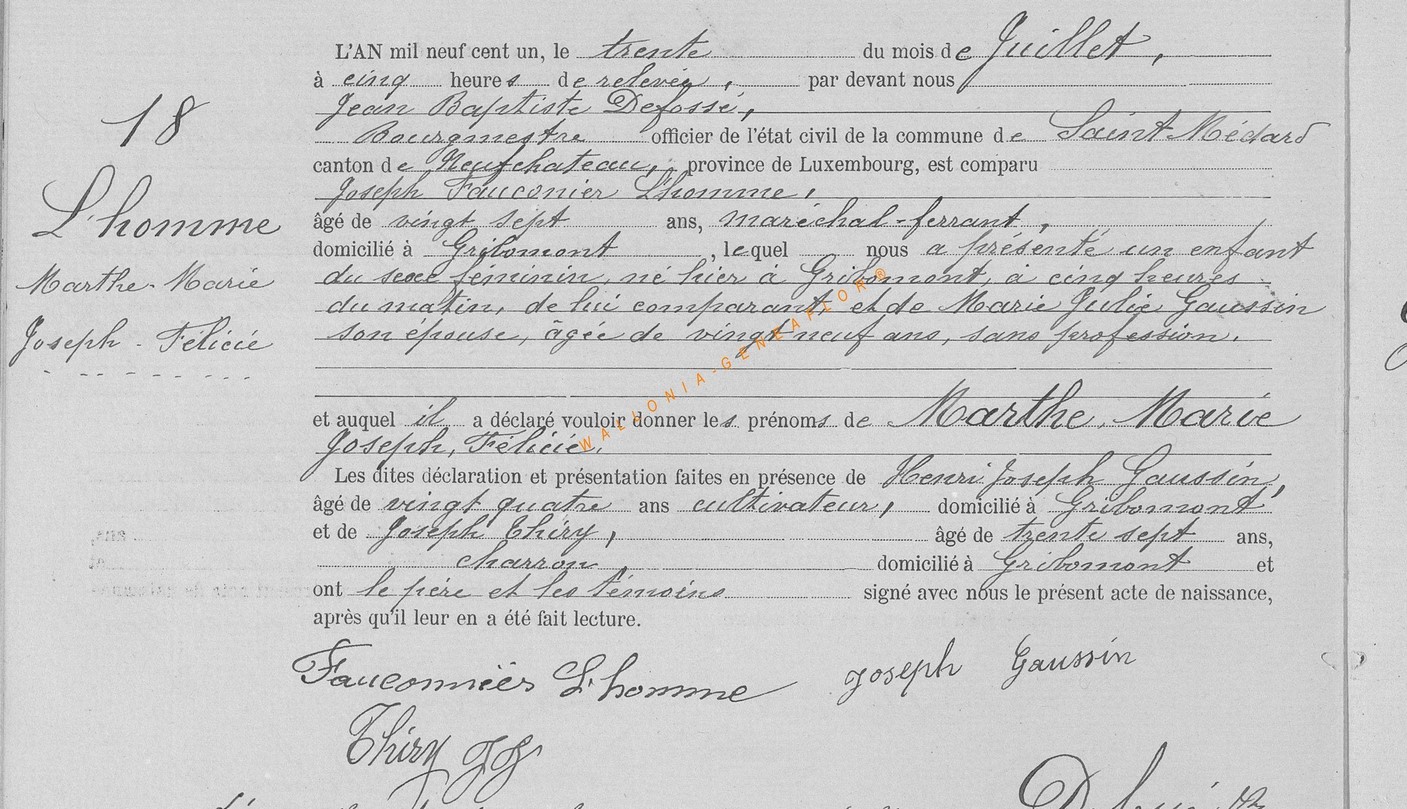 18
L'homme
Marthe-Marie
Joseph-Félicie
L'AN mil neuf cent un, le trente du mois de Juillet,
à cinq heures de relevée, par devant nous
Jean Baptiste Defossé,
Bourgmestre officier de l'état civil de la commune de Saint Médard
canton de Neufchateau, province de Luxembourg, est comparu
Joseph Fauconier L'homme,
âgé de vingt sept ans, maréchal-ferrant,
domicilié à Gribomont, lequel nous a présenté un enfant
du sexe féminin, né hier à Gribomont, à cinq heures
du matin, de lui comparant et de Marie Julie Gaussin
son épouse, âgée de vingt neuf ans, sans profession.
et auquel il a déclaré vouloir donner les prénoms de Marthe, Marie
Joseph, Félicie.
Les dites déclaration et présentation faites en présence de Henri Joseph Gaussin,
âgé de vingt quatre ans cultivateur, domicilié à Gribomont
et de Joseph Thiry, âgé de trente sept ans,
charron, domicilié à Gribomont et
ont le père et les témoins signé avec nous le présent acte de naissance,
après qu'il leur en a été fait lecture.
Fauconniér L'homme Joseph Gaussin
Thiry JJ
WALLONIA-GENEAFLOR®